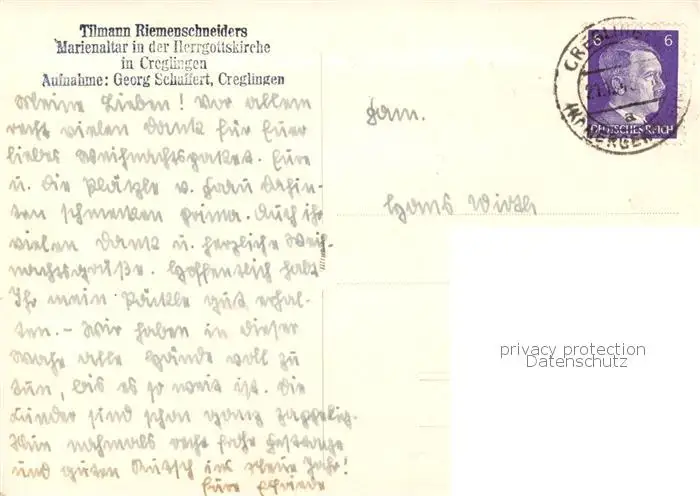 Tilmann Riemenschneiders
Marienaltar in der Herrgottskirche
in Creglingen
Aufnahme: Georg Schaffert, Creglingen
Meine Lieben! Vor allem
recht vielen Dank für Euer
liebes Weihnachtspaket. Eure
u. die Plätzle v. Frau Dahin-
ten schmecken prima. Auch ihr
vielen Dank u. herzliche Weih-
nachtsgrüße. Hoffentlich habt
Ihr mein Päckle gut erhal-
ten. - Wir haben in dieser
Woche alle Hände voll zu
tun, bis es so weit ist. Die
Kinder sind schon ganz zappelig.
Nun nochmals recht frohe Festtage
und guten Rutsch ins Neue Jahr!
Eure Friede
Fam.
Hans Wirth
6 6
DEUTSCHES REICH
CREGLINGEN
a
privacy protection
Datenschutz